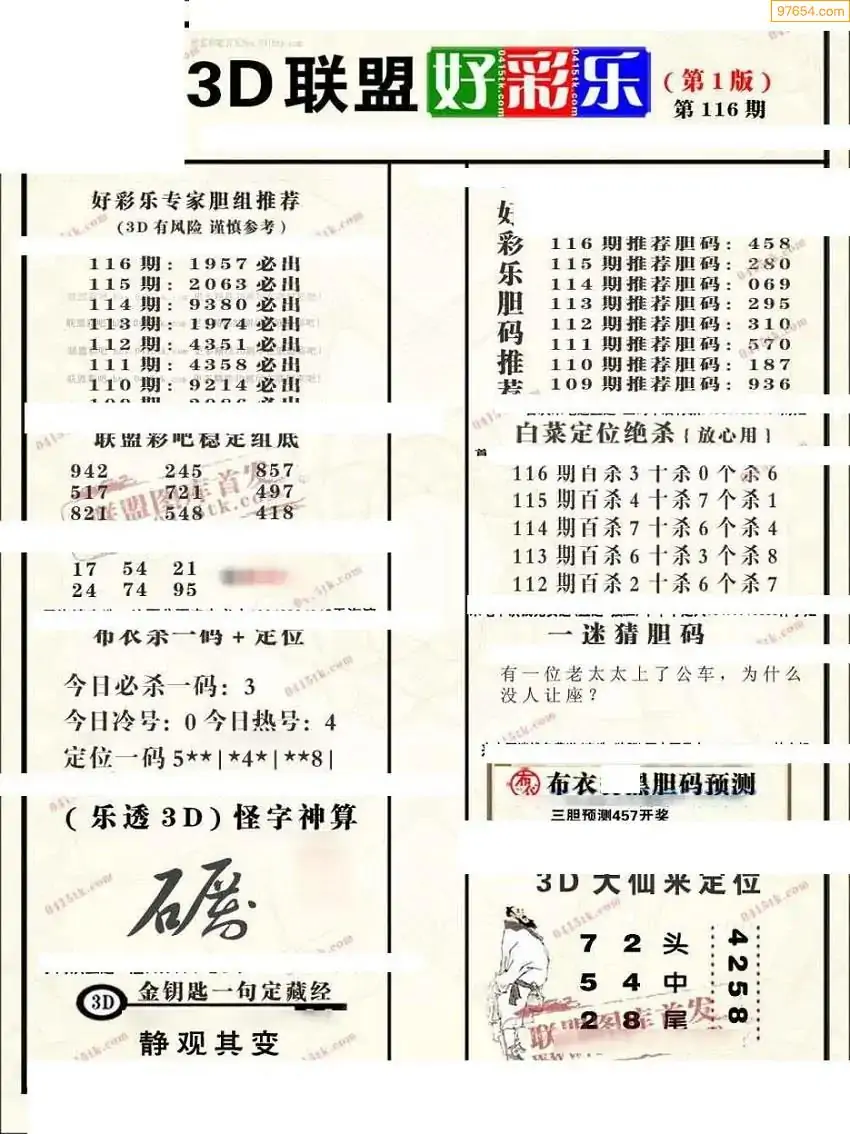 97654.com
3D联盟好彩乐
(第1版)
第116期
好彩乐专家胆组推荐
(3D有风险 谨慎参考)
116期: 1957必出
115期: 2063必出
114期: 9380必出
113期: 1974必出
112期: 4351必出
111期: 4358必出
110期: 9214必出
联盟彩吧稳定组底
942 245 857
517 721 497
821 548 418
17 54 21
24 74 95
布衣杀一码+定位
今日必杀一码: 3
今日冷号: 0 今日热号: 4
定位一码5**|*4*|**8|
(乐透3D)怪字神算
3D 金钥匙一句定藏经
静观其变
好彩乐胆码推荐
116期推荐胆码: 458
115期推荐胆码: 280
114期推荐胆码: 069
113期推荐胆码: 295
112期推荐胆码: 310
111期推荐胆码: 570
110期推荐胆码: 187
109期推荐胆码: 936
白菜定位绝杀{放心用}
116期百杀3十杀0个杀6
115期百杀4十杀7个杀1
114期百杀7十杀6个杀4
113期百杀6十杀3个杀8
112期百杀2十杀6个杀7
一迷猜胆码
有一位老太太上了公车，为什么
没人让座？
布衣 黑胆码预测
三胆预测457开奖
3D大仙来定位
7 2 头
5 4 中
2 8 尾
4258
联盟图库首发
0415tk.com